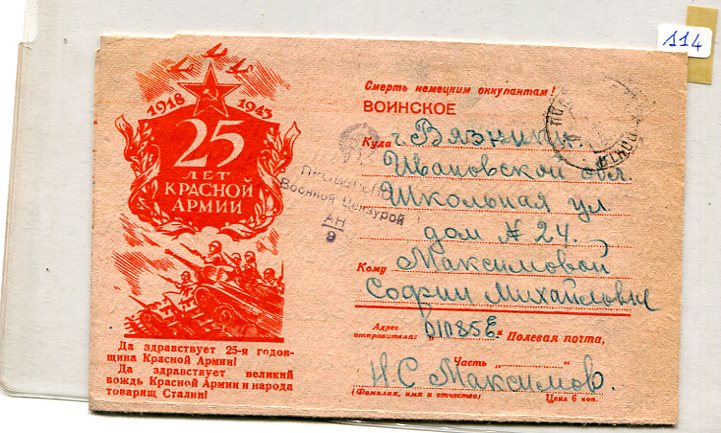 114
1918 1943
25
ЛЕТ
КРАСНОЙ
АРМИИ
Да здравствует 25-я годов-
щина Красной Армии!
Да здравствует великий
вождь Красной Армии и народа
товарищ Сталин!
Смерть немецким оккупантам!
ВОИНСКОЕ
Куда г. Вязники.
Ивановской обл.
Школьная ул
дом № 24.
Кому Максимовой
Софии Михайловне
Адрес
отправителя: 01085Е " Полевая почта,
Часть "
Н С Максимов.
(Фамилия, имя и отчество) Цена 6 коп.
ПРОВЕРЕНО
Военной Цензурой
АН
9